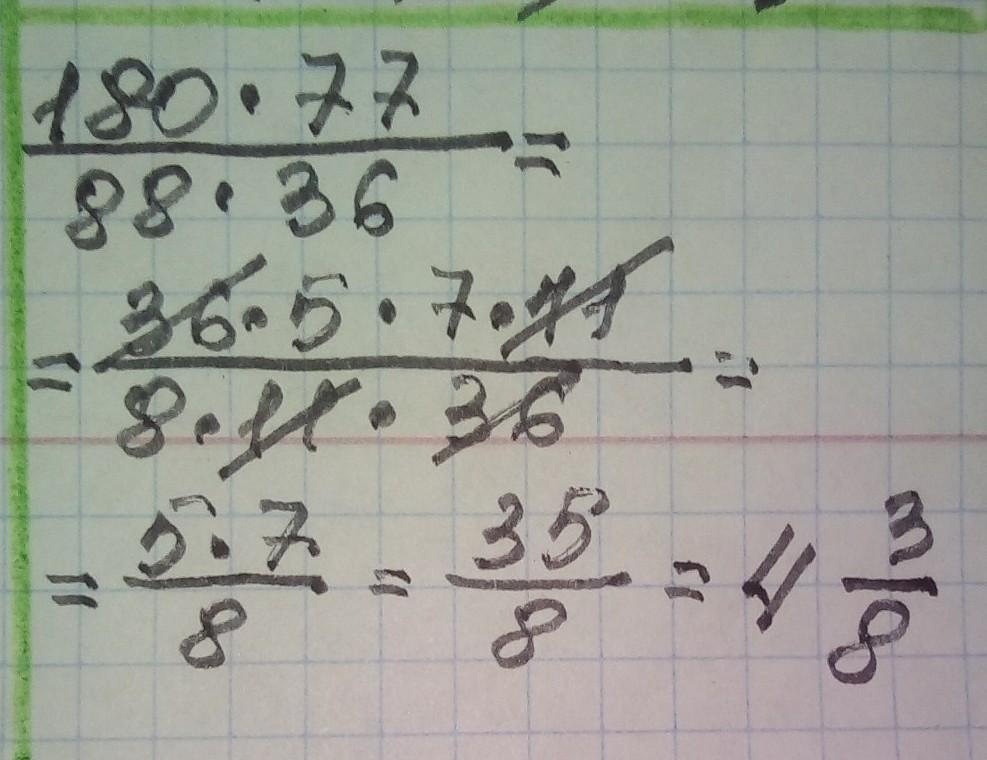 180·77
88·36 =
= 36·5·7·11 =
8·11·36
= 5·7 = 35 = 4 3
8 8 8